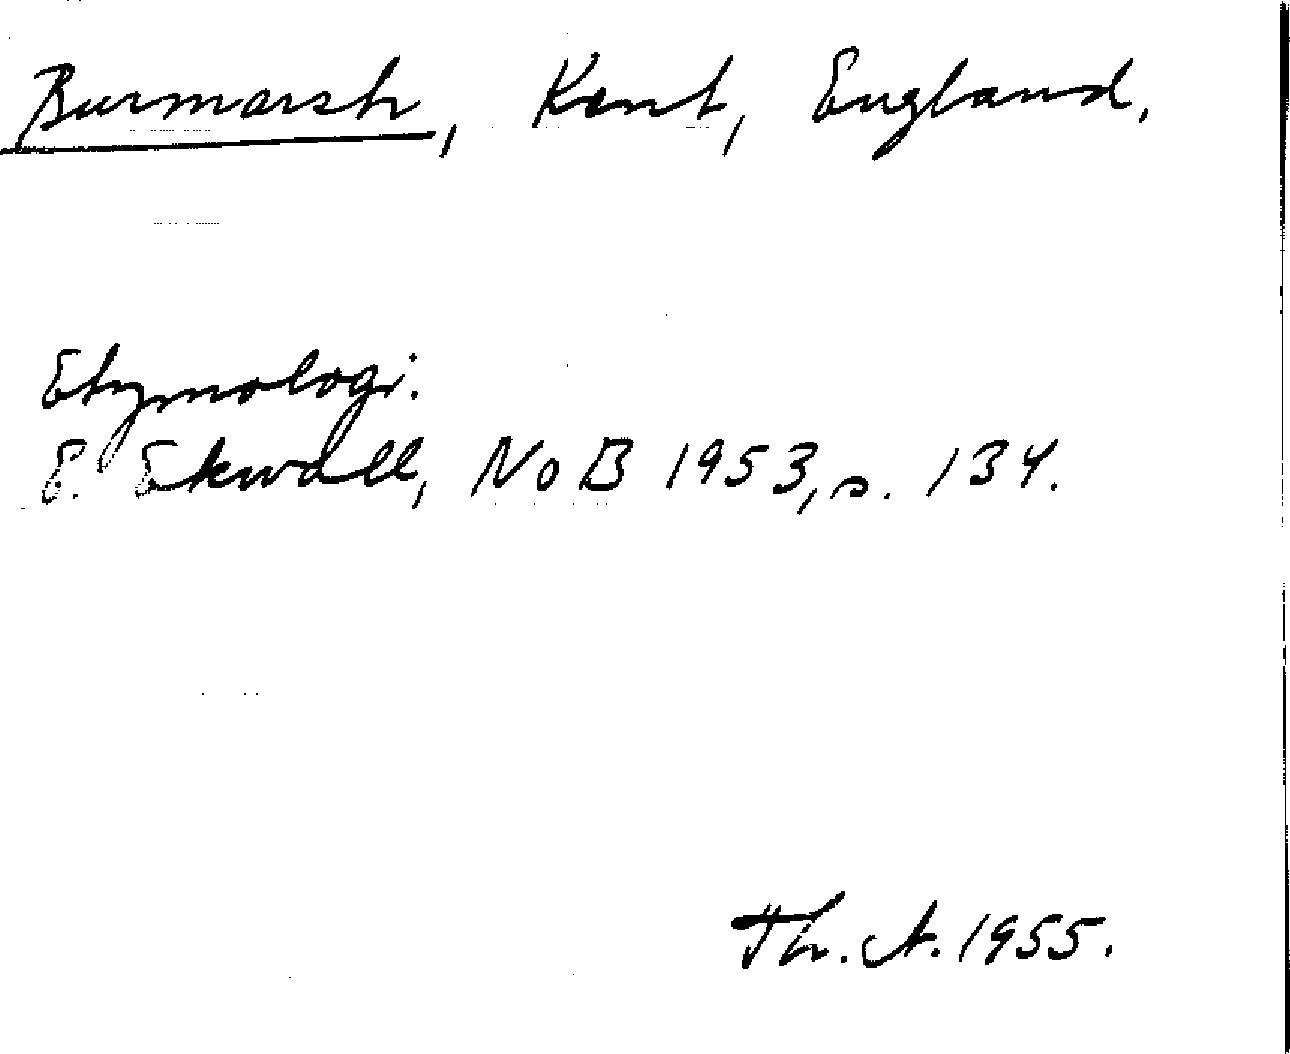 Burmarsh, Kent, England.
Etymologi.
E. Ekwall, NoB 1953, s. 134.
Th. A. 1955.